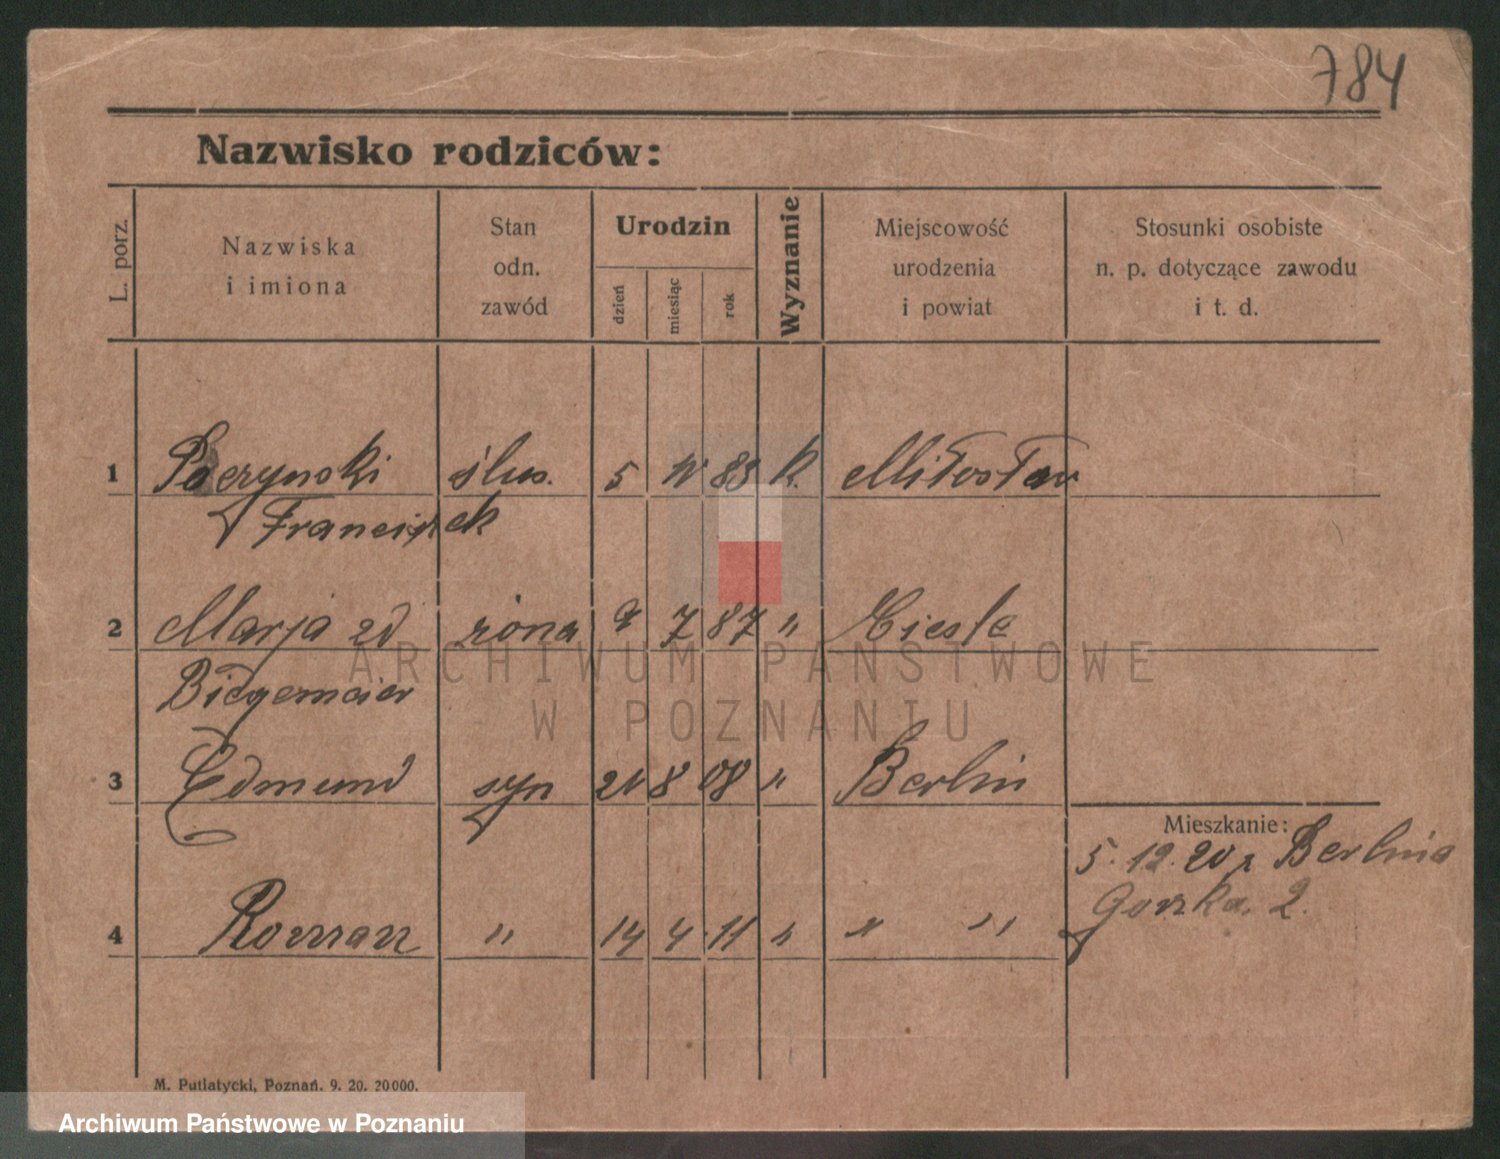 784
Nazwisko rodziców:
L. porz.
Nazwiska
i imiona
Stan
odn.
zawód
Urodzin
dzień
miesiąc
rok
Wyznanie
Miejscowość
urodzenia
i powiat
Stosunki osobiste
n. p. dotyczące zawodu
i t. d.
1 ślus. 5 83 k. Miłosław
Franciszek
2 Marja zd żona 7 87 "
3 Edmund syn 21 8 08 " Berlin
Mieszkanie:
5. 12. 20 z Berlina
2.
4 Roman " 14 4 11 " " "
M. Putiatycki, Poznań. 9. 20. 20000.
ARCHIWUM PAŃSTWOWE
W POZNANIU
Archiwum Państwowe w Poznaniu